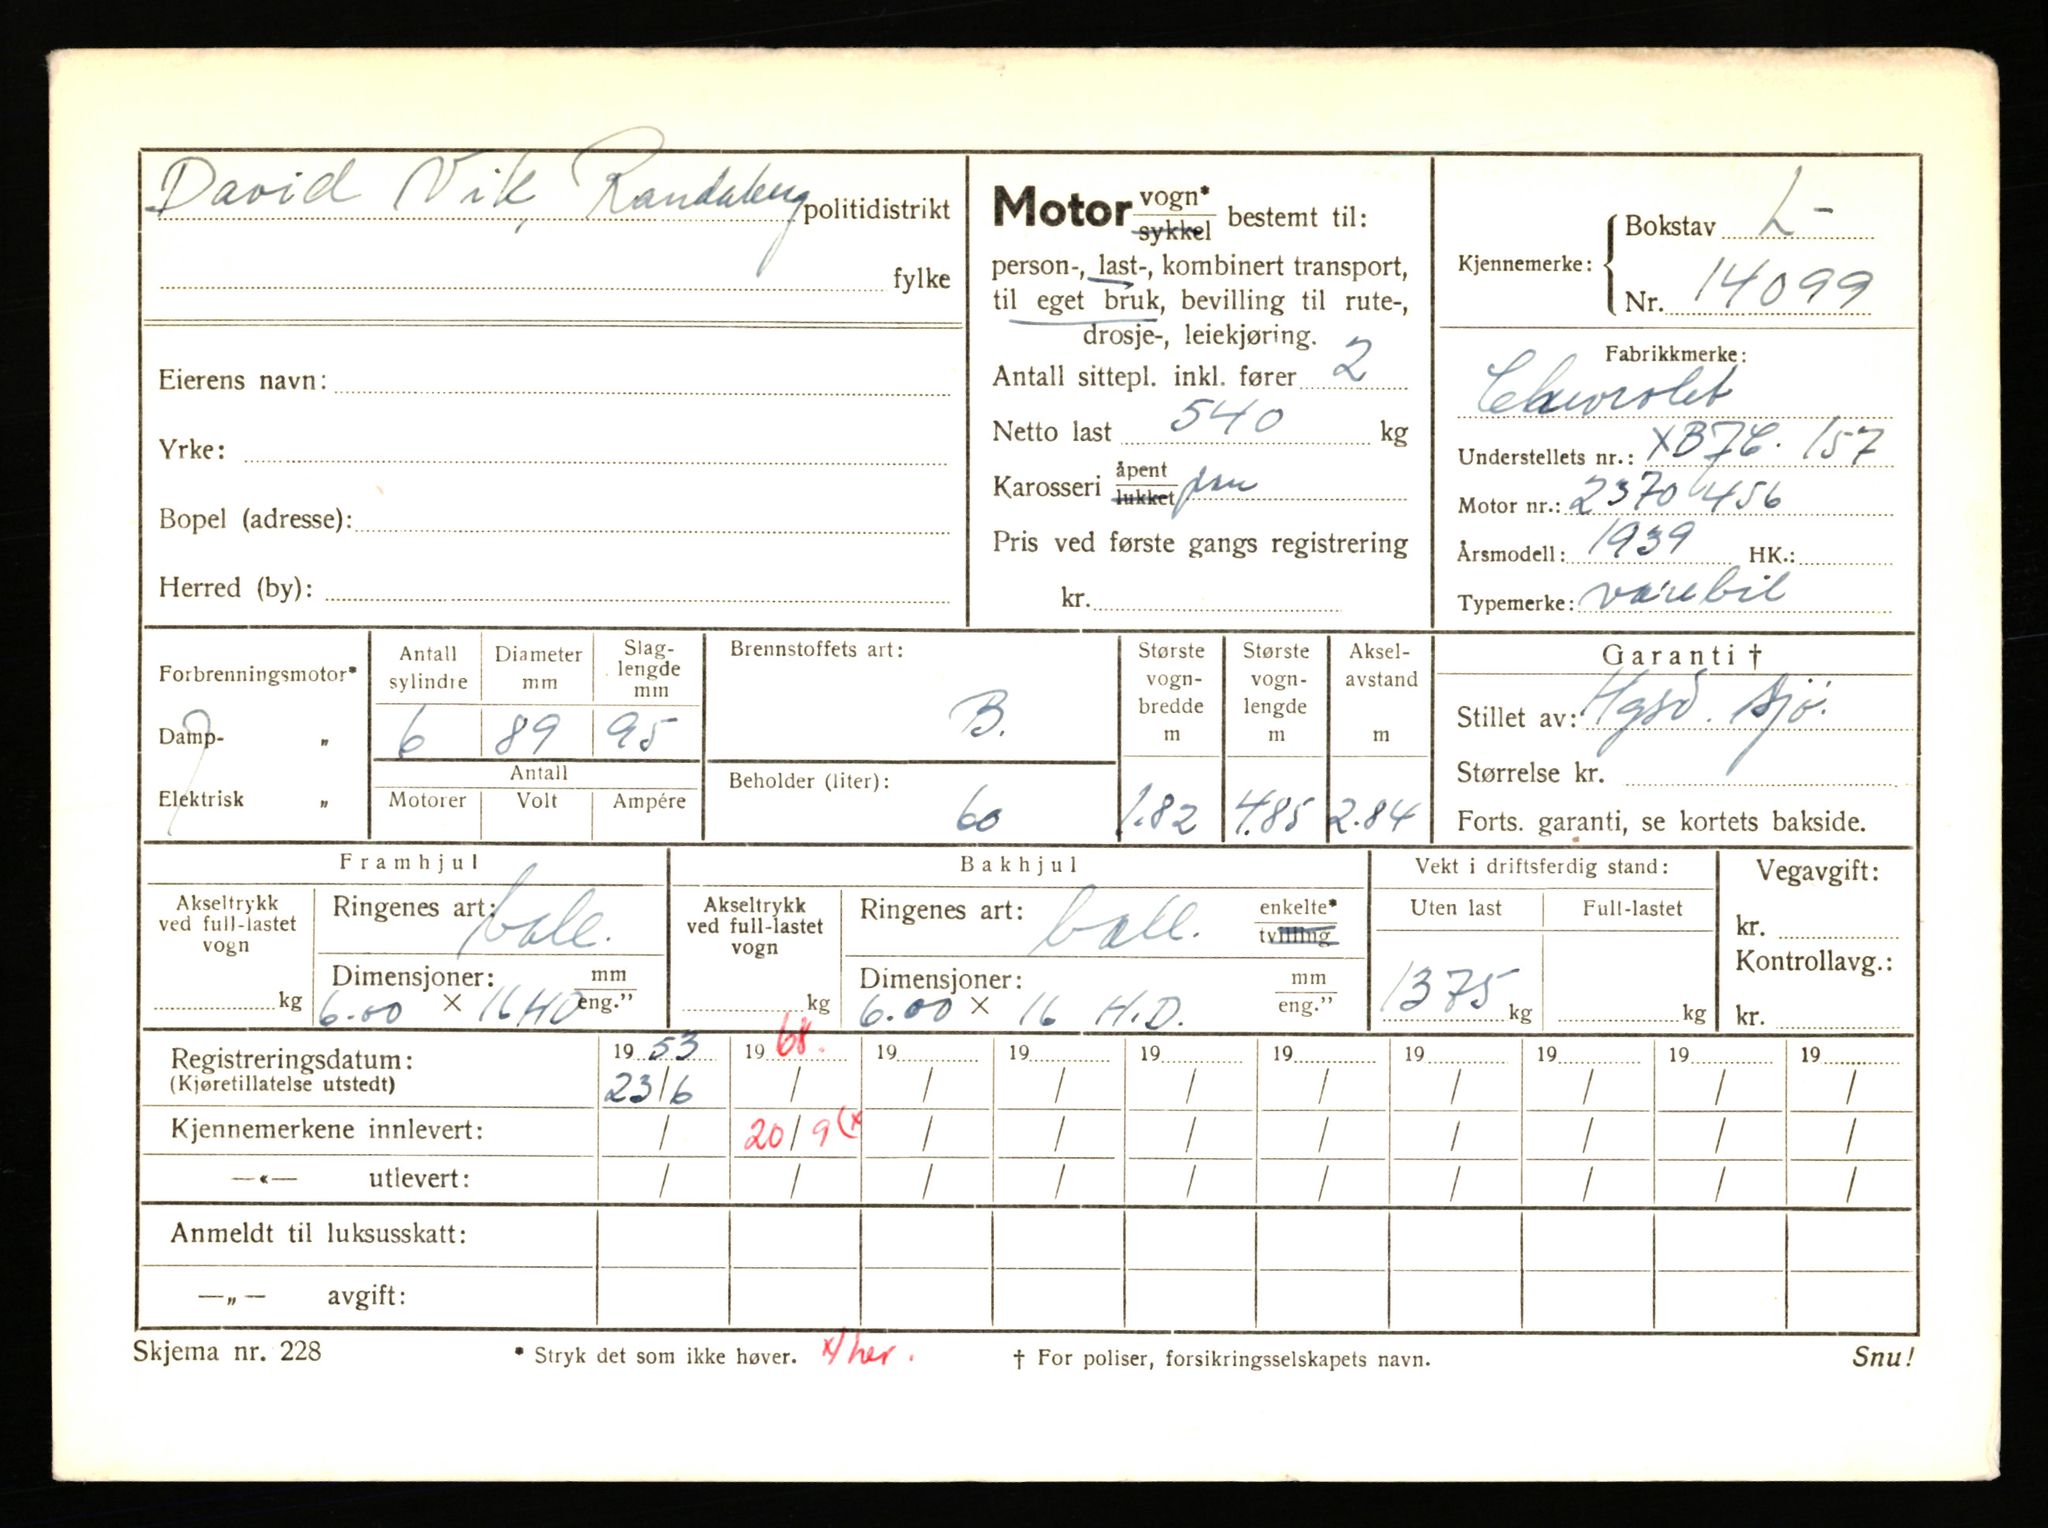 David Vik, Randaberg politidistrikt
fylke
Eierens navn:
Yrke:
Bopel (adresse):
Herred (by):
Motor vogn* sykkel bestemt til:
person-, last-, kombinert transport,
til eget bruk, bevilling til rute-,
drosje-, leiekjøring.
Antall sittepl. inkl. fører 2
Netto last 540 kg
Karosseri åpent lukket
Pris ved første gangs registrering
kr.
Kjennemerke:
Bokstav L-
Nr. 14099
Fabrikkmerke:
Chevrolet
Understellets nr.: XB7C. 157
Motor nr.: 2370456
Årsmodell: 1939 HK.:
Typemerke: varebil
Forbrenningsmotor*
Damp- „
Elektrisk „
Antall sylindre
6
Diameter mm
89
Slag- lengde mm
95
Antall
Motorer Volt Ampére
Brennstoffets art:
B.
Beholder (liter):
60
Største vogn- bredde m
1.82
Største vogn- lengde m
4.85
Aksel- avstand m
2.84
Garanti †
Stillet av: sjø.
Størrelse kr.
Forts. garanti, se kortets bakside.
Framhjul
Akseltrykk
ved full-lastet
vogn
kg
Ringenes art: ball.
Dimensjoner: mm eng."
6.00 × 16 HD
Bakhjul
Akseltrykk
ved full-lastet
vogn
kg
Ringenes art: ball. enkelte* tvilling
Dimensjoner: mm eng."
6.00 × 16 H.D.
Vekt i driftsferdig stand:
Uten last Full-lastet
1375 kg kg
Vegavgift:
kr.
Kontrollavg.:
kr.
Registreringsdatum: 19 53 19 68. 19 19 19 19 19 19 19 19
(Kjøretillatelse utstedt) 23/6 / / / / / / / / /
Kjennemerkene innlevert: / 20/9 (x / / / / / / / /
—«— utlevert: / / / / / / / / / /
Anmeldt til luksusskatt:
—„— avgift:
Skjema nr. 228 * Stryk det som ikke høver. x/ her. † For poliser, forsikringsselskapets navn. Snu!